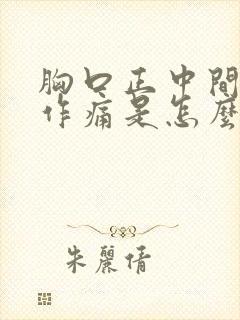 胸口正中間
作痛是怎麼
朱麗倩